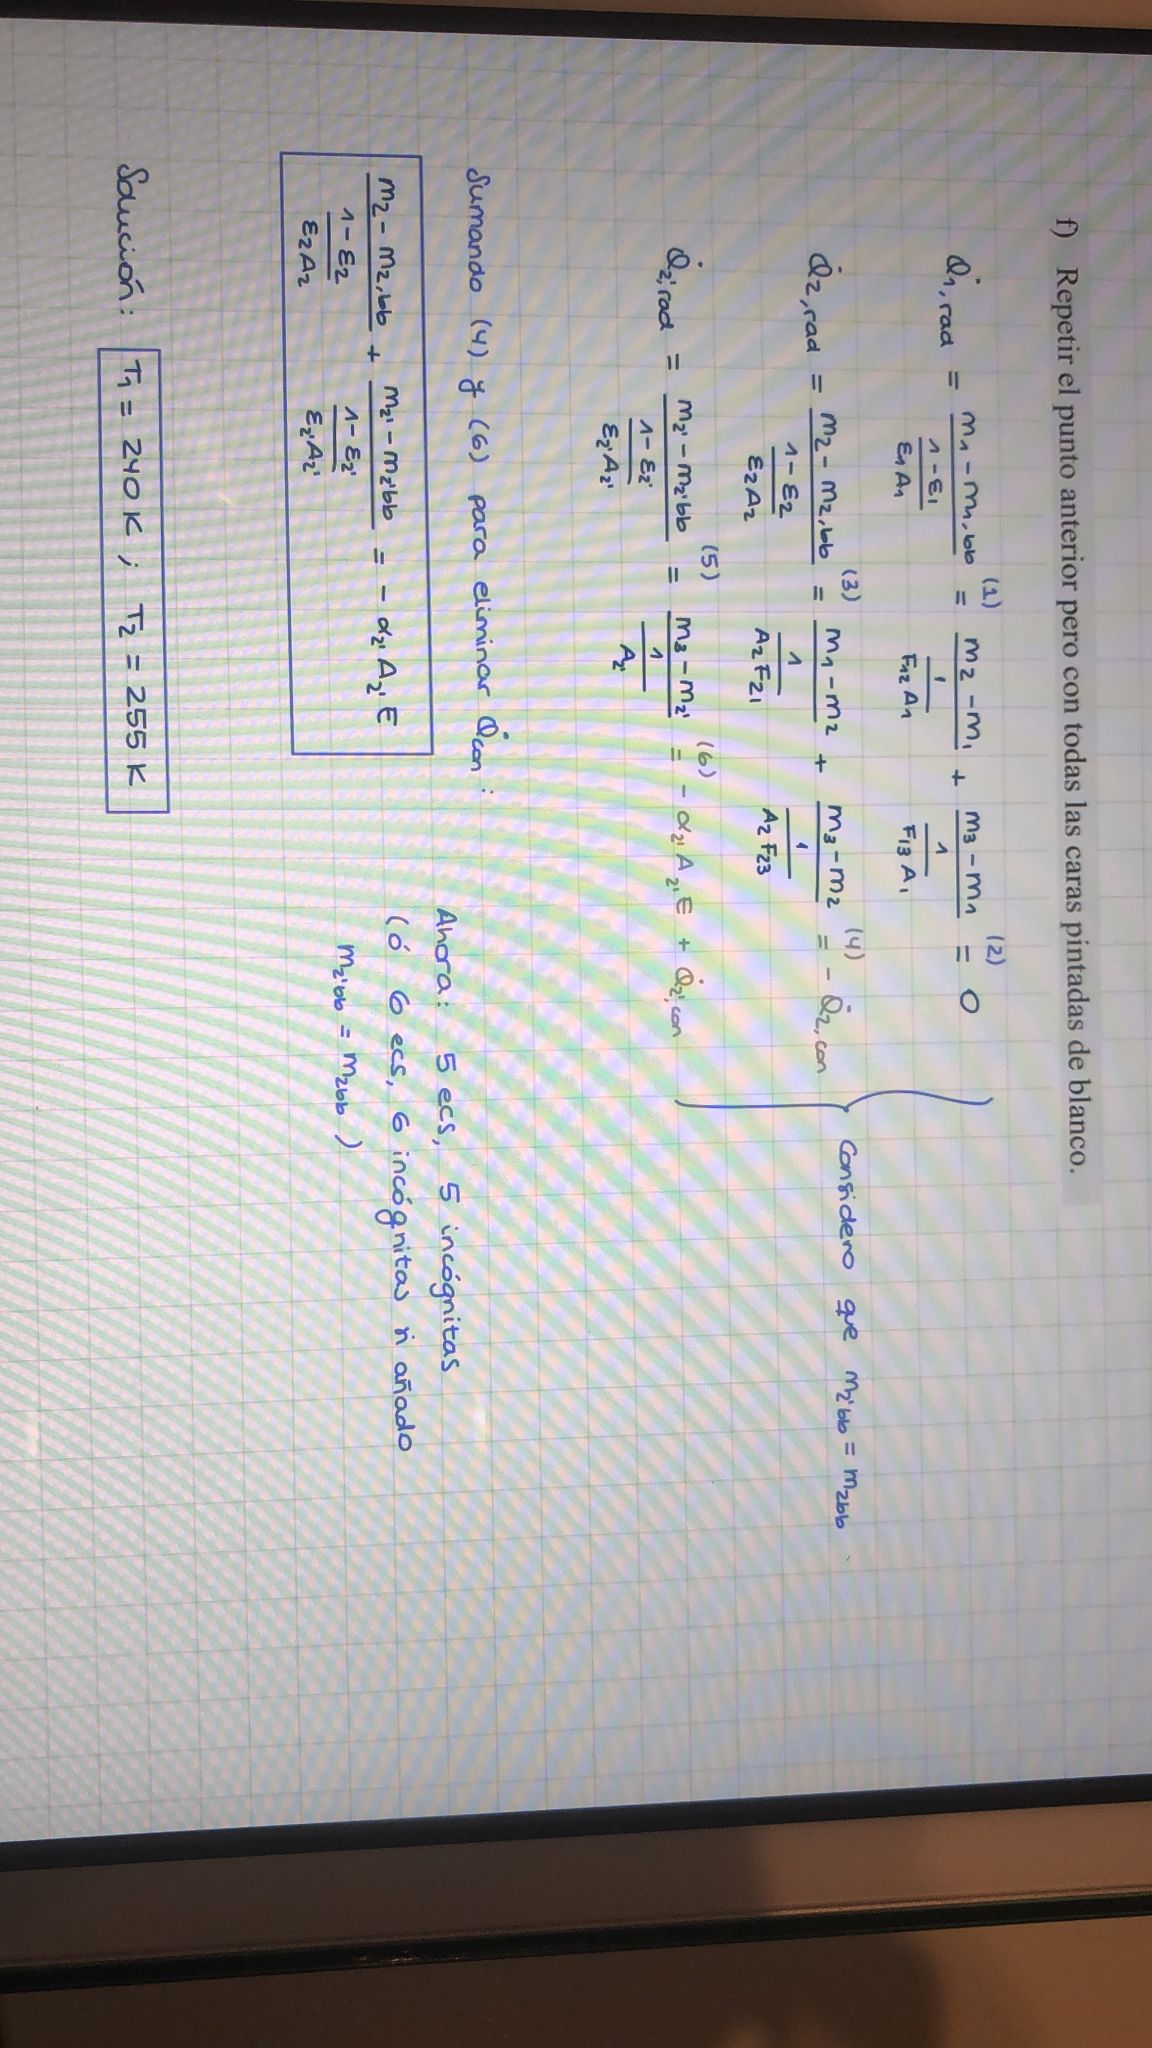 f) Repetir el punto anterior pero con todas las caras pintadas de blanco.
Q̇1,rad = (m1 - m1,bb) / ((1-ε1)/(ε1A1)) (1)= (m2 - m1) / (1/(F12 A1)) + (m3 - m1) / (1/(F13 A1)) (2)= 0
Q̇2,rad = (m2 - m2,bb) / ((1-ε2)/(ε2A2)) (3)= (m1 - m2) / (1/(A2 F21)) + (m3 - m2) / (1/(A2 F23)) (4)= - Q̇2,con
Considero que m2'bb = m2bb
Q̇2',rad = (m2' - m2'bb) / ((1-ε2')/(ε2'A2')) (5)= (m3 - m2') / (1/A2') (6)= - α2' A2' E + Q̇2',con
Sumando (4) y (6) para eliminar Q̇con :
(m2 - m2,bb) / ((1-ε2)/(ε2A2)) + (m2' - m2'bb) / ((1-ε2')/(ε2'A2')) = - α2' A2' E
Ahora: 5 ecs, 5 incógnitas
(ó 6 ecs, 6 incógnitas si añado
m2'bb = m2bb )
Solución: T1 = 240 K ; T2 = 255 K